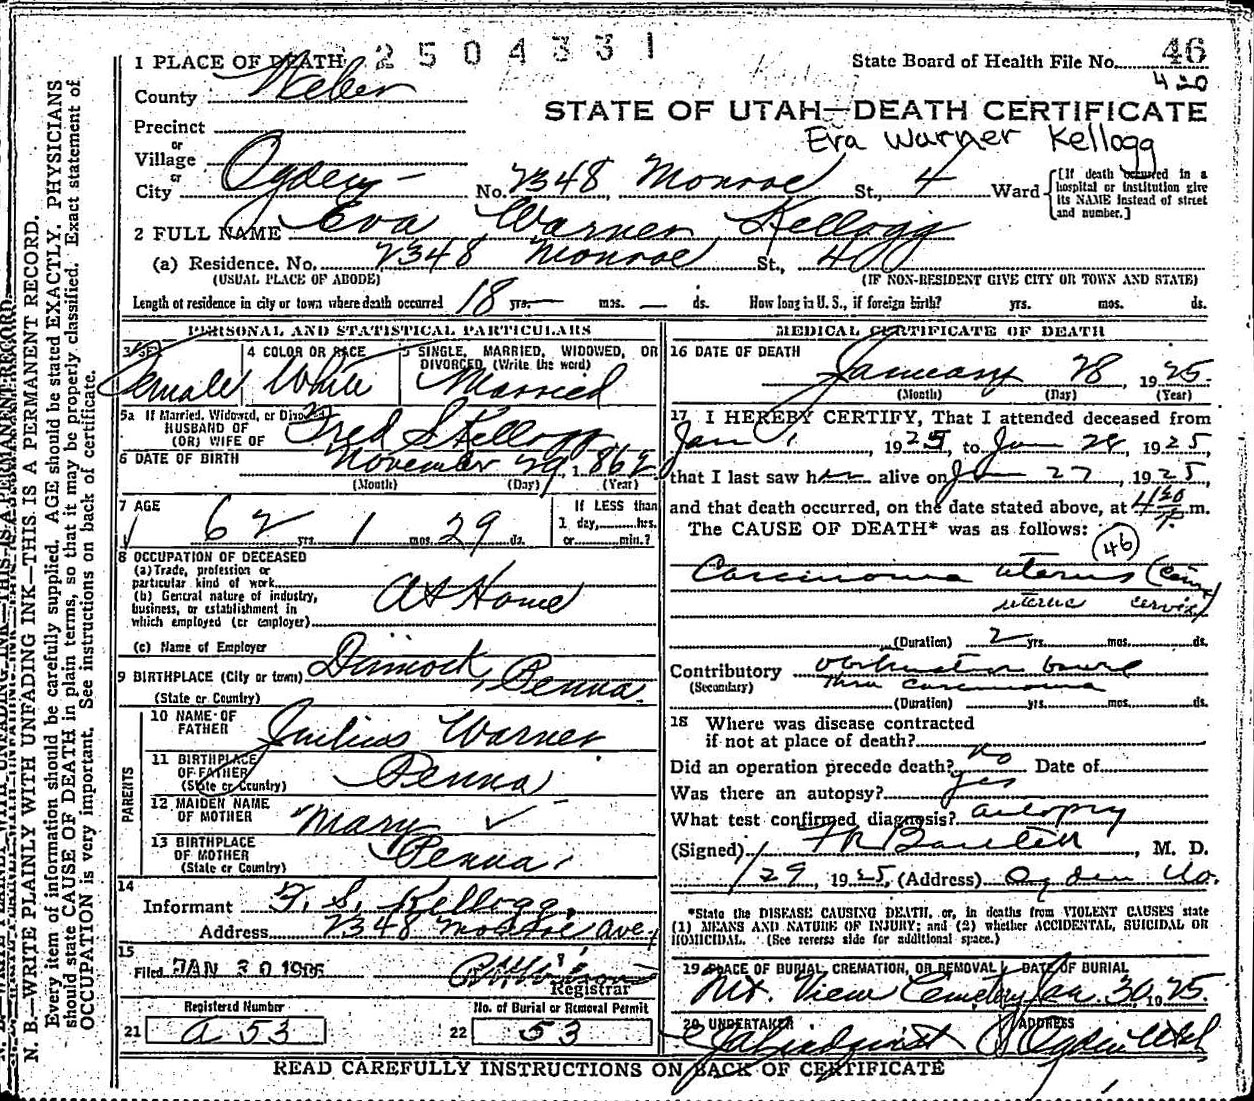 2504331
1 PLACE OF DEATH
State Board of Health File No. 46
420
County Weber
STATE OF UTAH—DEATH CERTIFICATE
Eva Warner Kellogg
Precinct
or
Village
or
City Ogden No. 2348 Monroe St., 4 Ward
[If death occured in a hospital or institution give its NAME instead of street and number.]
2 FULL NAME Eva Warner Kellogg
(a) Residence. No. 2348 Monroe St., 4
(USUAL PLACE OF ABODE) (IF NON-RESIDENT GIVE CITY OR TOWN AND STATE)
Length of residence in city or town where death occurred 18 yrs. — mos. — ds. How long in U. S., if foreign birth? yrs. mos. ds.
PERSONAL AND STATISTICAL PARTICULARS
3 SEX Female
4 COLOR OR RACE White
5 SINGLE, MARRIED, WIDOWED, OR DIVORCED (Write the word) Married
5a If Married, Widowed, or Divorced
HUSBAND OF
(OR) WIFE OF Fred S Kellogg
6 DATE OF BIRTH November 29 1862
(Month) (Day) (Year)
7 AGE 62 yrs. 1 mos. 29 ds.
If LESS than
1 day, hrs.
or min.?
8 OCCUPATION OF DECEASED
(a) Trade, profession or
particular kind of work
(b) General nature of industry,
business, or establishment in
which employed (or employer)
At Home
(c) Name of Employer
9 BIRTHPLACE (City or town) Dimock, Penna.
(State or Country)
PARENTS
10 NAME OF FATHER Julius Warner
11 BIRTHPLACE OF FATHER (State or Country) Penna
12 MAIDEN NAME OF MOTHER Mary ✓
13 BIRTHPLACE OF MOTHER (State or Country) Penna.
14
Informant F. S. Kellogg.
Address 2348 Monroe Ave.
15
Filed JAN 30
Registrar
Registered Number
21 a 53
No. of Burial or Removal Permit
22 53
MEDICAL CERTIFICATE OF DEATH
16 DATE OF DEATH
January 28, 1925.
(Month) (Day) (Year)
17 I HEREBY CERTIFY, That I attended deceased from
Jan 1, 1925, to Jan 28 1925,
that I last saw her alive on Jan 27, 1925,
and that death occurred, on the date stated above, at 4 30 P. m.
The CAUSE OF DEATH* was as follows:
46
Carcinoma uterus
uterus cervix)
(Duration) 2 yrs. mos. ds.
Contributory obstruction bowel
(Secondary) thru carcinoma
(Duration) yrs. mos. ds.
18 Where was disease contracted
if not at place of death?
Did an operation precede death? no Date of
Was there an autopsy? yes
What test confirmed diagnosis? autopsy
(Signed) M. D.
1/29, 1925, (Address) Ogden
*State the DISEASE CAUSING DEATH, or, in deaths from VIOLENT CAUSES state
(1) MEANS AND NATURE OF INJURY; and (2) whether ACCIDENTAL, SUICIDAL OR
HOMICIDAL. (See reverse side for additional space.)
19 PLACE OF BURIAL, CREMATION, OR REMOVAL DATE OF BURIAL
Mt. View Cemetery Jan. 30, 1925.
20 UNDERTAKER ADDRESS
Ogden Utah
READ CAREFULLY INSTRUCTIONS ON BACK OF CERTIFICATE
N. B.—WRITE PLAINLY WITH UNFADING INK—THIS IS A PERMANENT RECORD.
Every item of information should be carefully supplied. AGE should be stated EXACTLY. PHYSICIANS
should state CAUSE OF DEATH in plain terms, so that it may be properly classified. Exact statement of
OCCUPATION is very important. See instructions on back of certificate.